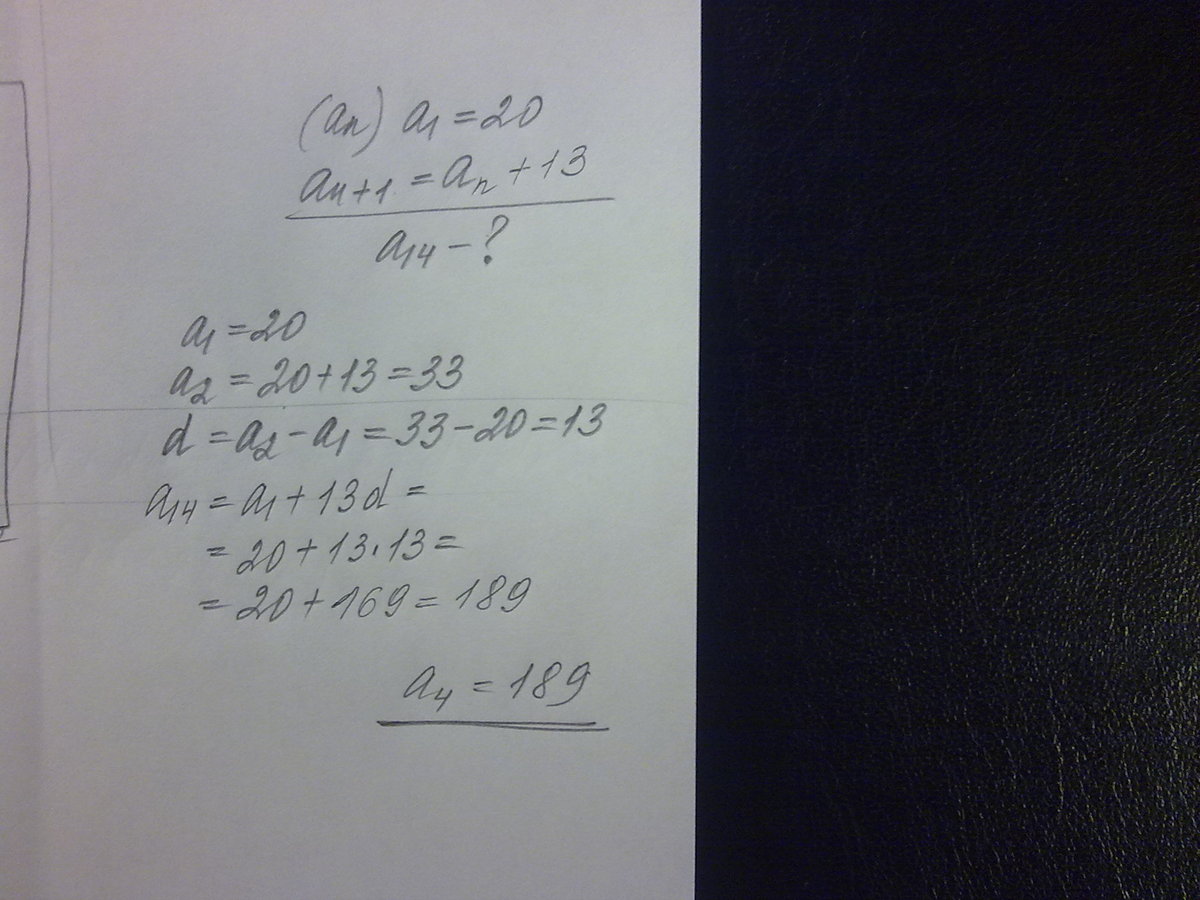 (an) a1 = 20
an+1 = an + 13
a14 - ?
a1 = 20
a2 = 20 + 13 = 33
d = a2 - a1 = 33 - 20 = 13
a14 = a1 + 13d =
= 20 + 13 · 13 =
= 20 + 169 = 189
a4 = 189